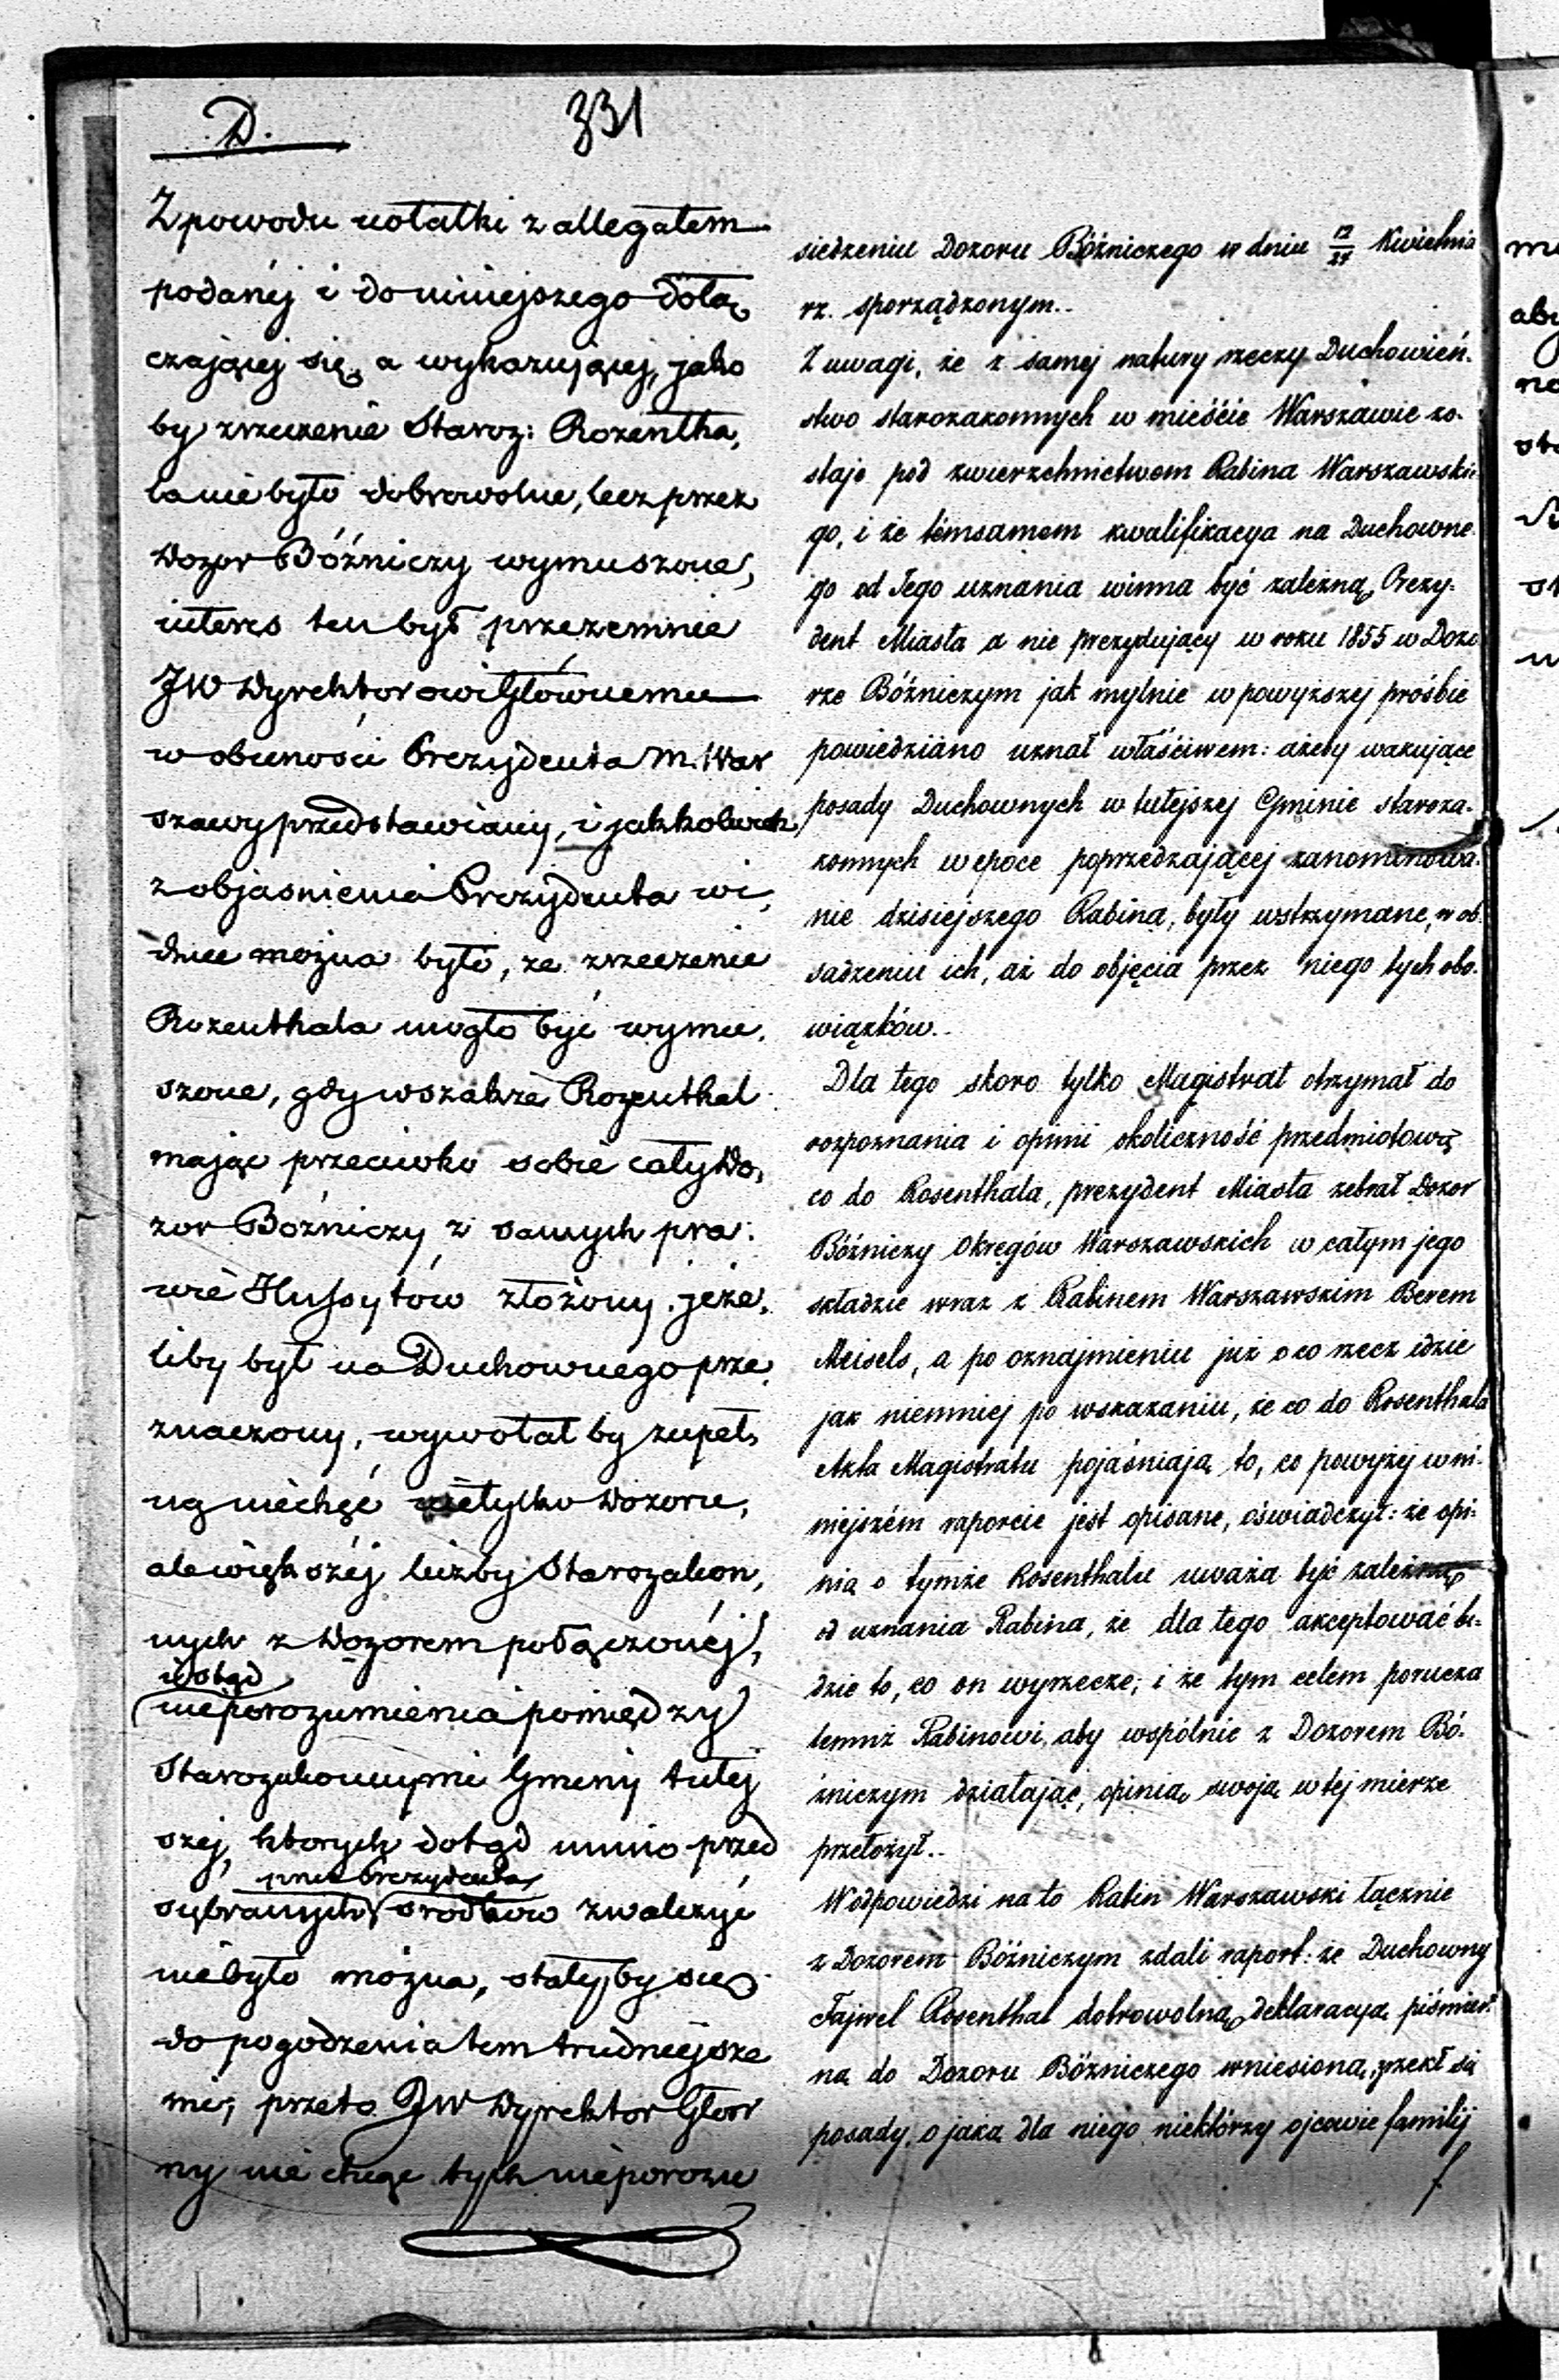 D.
331
Z powodu notatki z allegatem
podanéj i do niniejszego dołą,
czającej się, a wykazującej, jako
by zrzeczenie Staroz: Rozentha,
la nie było dobrowolne, lecz przez
Dozor Bóźniczy wymuszone,
interes ten był przezemnie
JW Dyrektorowi Głównemu
w obecności Prezydenta M. War
szawy przedstawiany, i jakkolwiek
z objasnienia Prezydenta wi,
dzieć można było, że zrzeczenie
Rozenthala mogło być wymu,
szone, gdy wszakże Rozenthal
mając przeciwko sobie cały Do,
zor Bóźniczy z samych pra:
wie Hussytów złożony, jeże,
liby był na Duchownego prze,
znaczony, wywołał by zupeł,
ną niechęć nietylko Dozoru,
ale większéj liczby Starozakon,
nych z Dozorem połączonéj,
i ztąd
nieporozumienia pomiędzy
Starozakonnymi Gminy tutej
szej, których dotąd mimo przed
przez Prezydenta
sębranych srodków zwalczyć
niebyło można, stały by się
do pogodzenia tem trudniejsze
mi; przeto JW Dyrektor Głów
ny nie chcąc tych nieporozu
siedzeniu Dozoru Bóźniczego w dniu 12/24 Kwietnia
rz. sporządzonym..
Z uwagi, że z samej natury rzeczy Duchowień-
stwo starozakonnych w mieście Warszawie zo-
staje pod zwierzchnictwem Rabina Warszawskie
go, i że témsamem kwalifikacya na Duchowne-
go od Jego uznania winna być zależną, Prezy-
dent Miasta a nie prezydujący w roku 1855 w Dozo
rze Bóźniczym jak mylnie w powyższej prośbie
powiedziano uznał właściwem: ażeby wakujące
posady Duchownych w tutejszej Gminie staroza-
konnych w epoce poprzedzającej zanominowa-
nie dzisiejszego Rabina, były wstrzymane, w ob-
sadzeniu ich, aż do objęcia przez niego tych obo-
wiązków..
Dla tego skoro tylko Magistrat otrzymał do
rozpoznania i opinii okoliczność przedmiotową
co do Rosenthala, prezydent Miasta zebrał Dozor
Bóźniczy Okręgów Warszawskich w całym jego
składzie wraz z Rabinem Warszawskim Berem
Meisels, a po oznajmieniu już o co rzecz idzie
jak niemniej po wskazaniu, że co do Rosenthala
Akta Magistratu pojaśniają to, co powyżej w ni-
niejszém raporcie jest opisane, oświadczył: że opi-
nią o tymże Rosenthalu uważa być zależną
od uznania Rabina, że dla tego akceptować bę-
dzie to, co on wyrzecze; i że tym celem porucza
temuż Rabinowi, aby wspólnie z Dozorem Bó-
źniczym działając, opinią swoją w tej mierze
przełożył..
W odpowiedzi na to Rabin Warszawski łącznie
z Dozorem Bóźniczym zdali raport: że Duchowny
Fajwel Rosenthal dobrowolną deklaracyą piśmien-
ną do Dozoru Bóźniczego wniesioną, zrzekł się
posady, o jaką dla niego niektórzy ojcowie familij